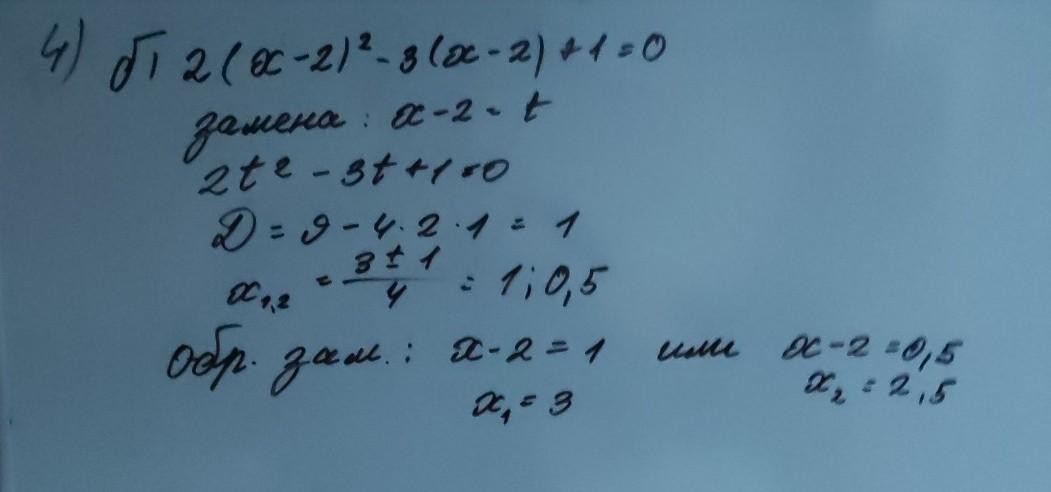 4) б) 2(x-2)² - 3(x-2) + 1 = 0
замена: x-2 = t
2t² - 3t + 1 = 0
D = 9 - 4·2·1 = 1
x₁,₂ = (3 ± 1)/4 = 1; 0,5
Обр. зам.: x-2 = 1 или x-2 = 0,5
x₁ = 3 x₂ = 2,5